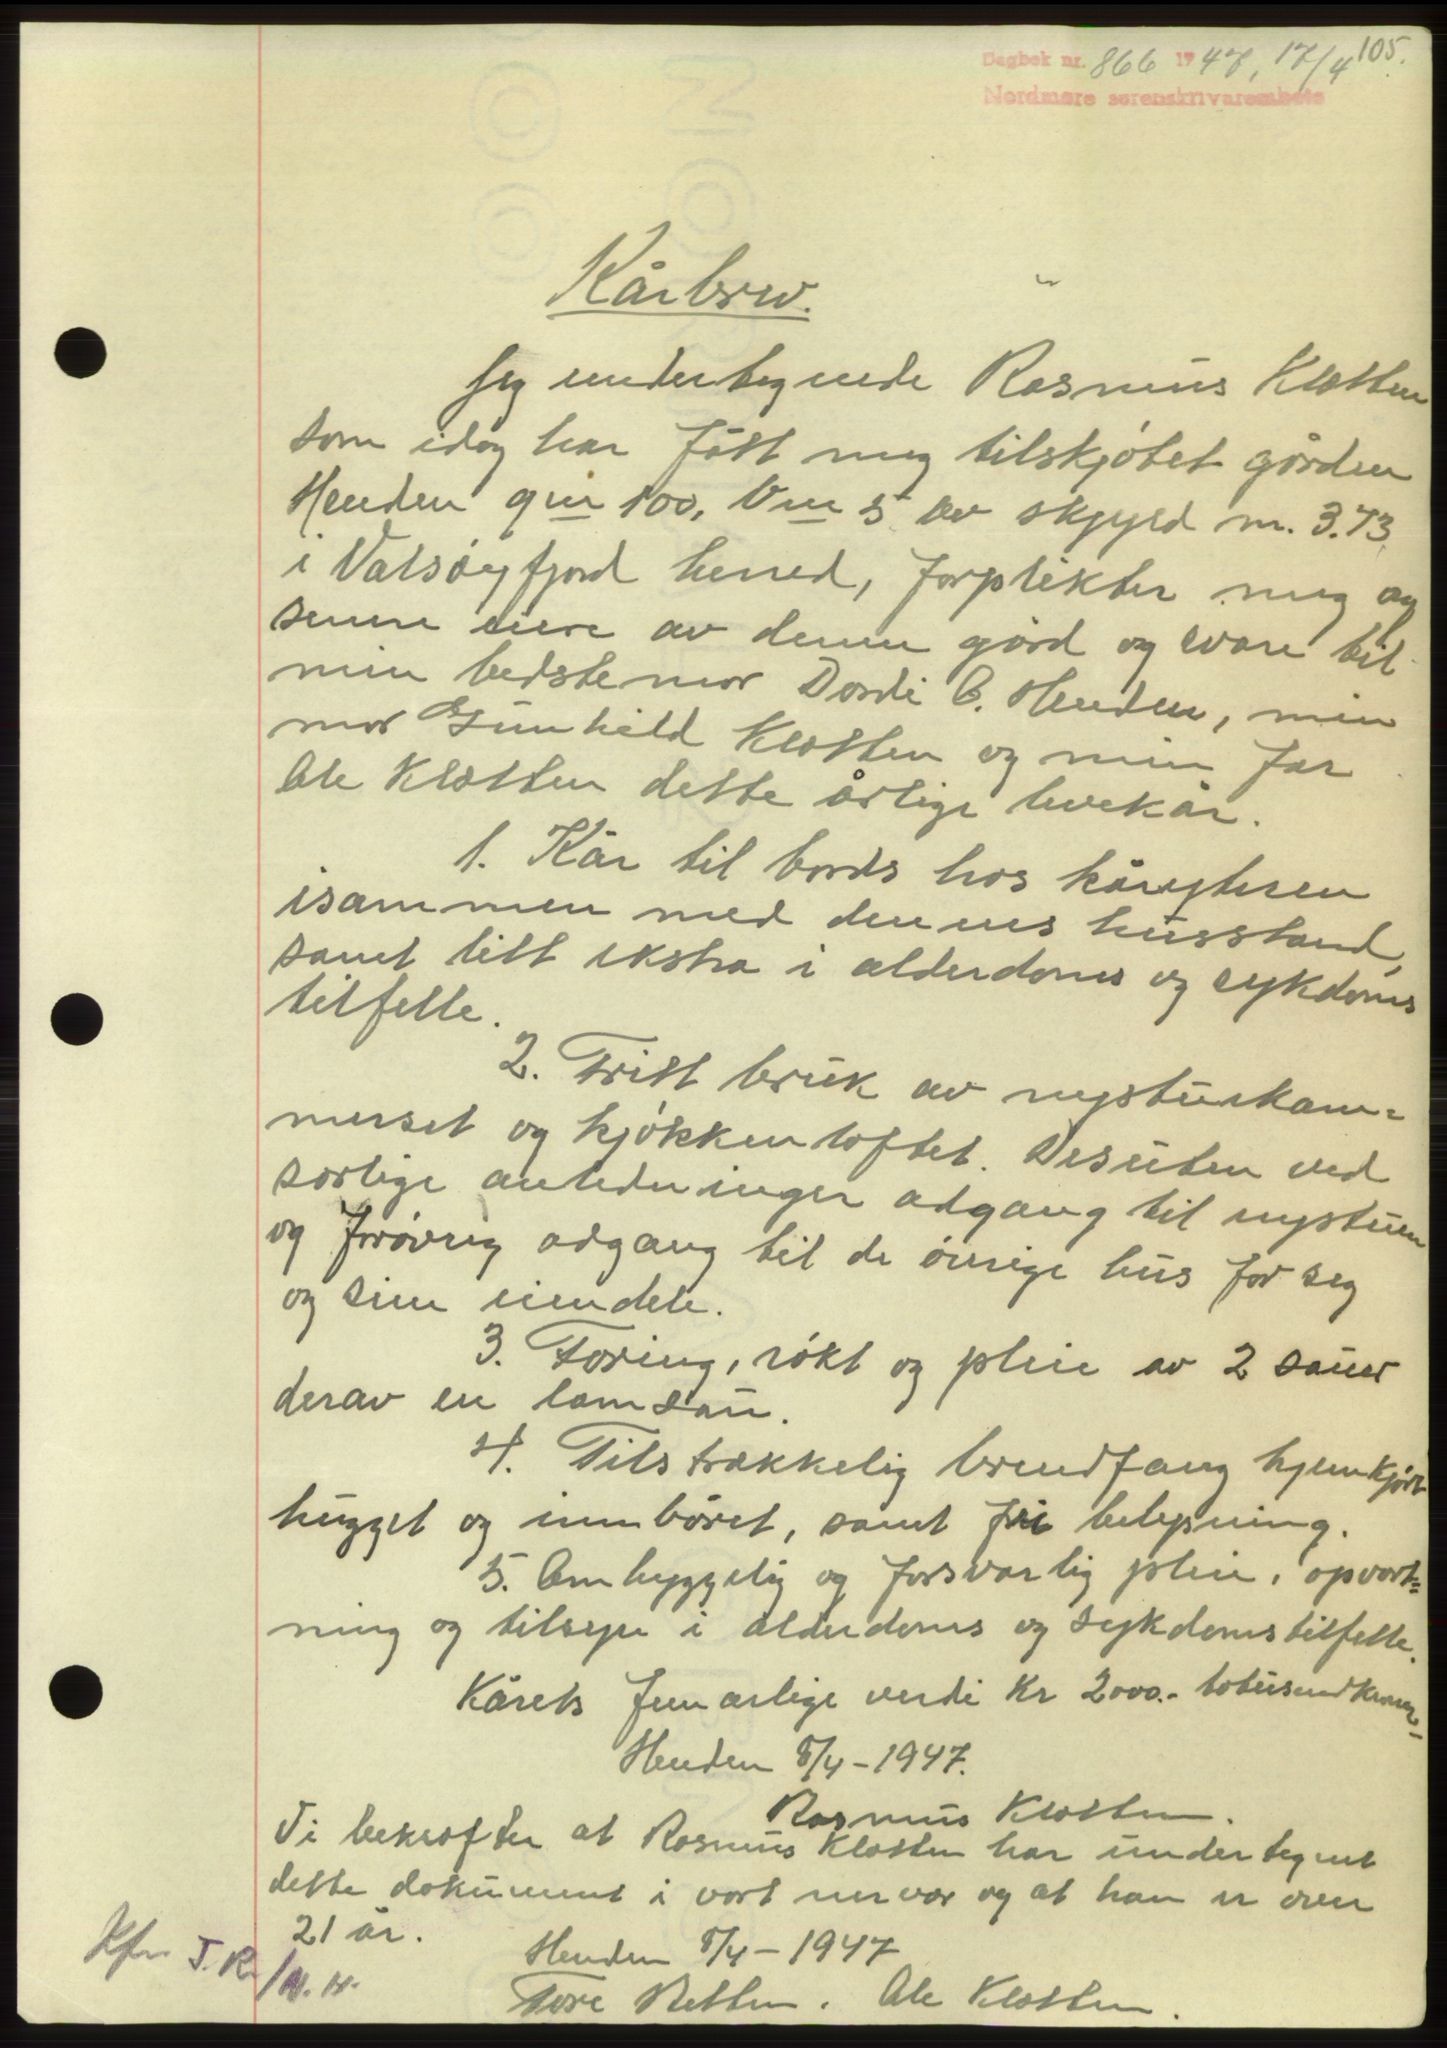 105.
Dagbok nr. 866 1947, 17/4
Nordmøre sorenskrivarembete
Kårbrev.
Jeg undertegnede Rasmus Kletten
som idag har fått meg tilskjøtet gården
Henden gnr 100, bnr 5 av skyld m. 3.73
i Valsøyfjord herred, forplikter meg og
senere eiere av denne gård og svare til
min bedstemor Dordi O. Henden, min
mor Gunhild Kletten og min far
Ole Kletten dette årlige levekår.
1. Kår til bords hos kåryteren
isammen med dennes husstand,
samt litt ekstra i alderdoms og sykdoms
tilfelle.
2. Fritt bruk av nystuekam=
merset og kjøkkenloftet. Desuten ved
særlige anledninger adgang til nystuen
og forøvrig adgang til de øvrige hus for seg
og sine eiendele.
3. Foring, røkt og pleie av 2 sauer
derav en lamsau.
4. Tilstrekkelig brendfang hjemkjørt
hugget og innbåret, samt fri belysning.
5. Omhyggelig og forsvarlig pleie, opvart=
ning og tilsyn i alderdoms og sykdomstilfelle.
Kårets femårlige verdi Kr 2000.- totusendkroner-
Henden 8/4-1947.
Rasmus Kletten.
Vi bekrefter at Rasmus Kletten har undertegnet
dette dokument i vort nervær og at han er over
21 år.
Henden 8/4-1947
Tore Betten. Ole Kletten.
Kfr. J. R. /M. H.